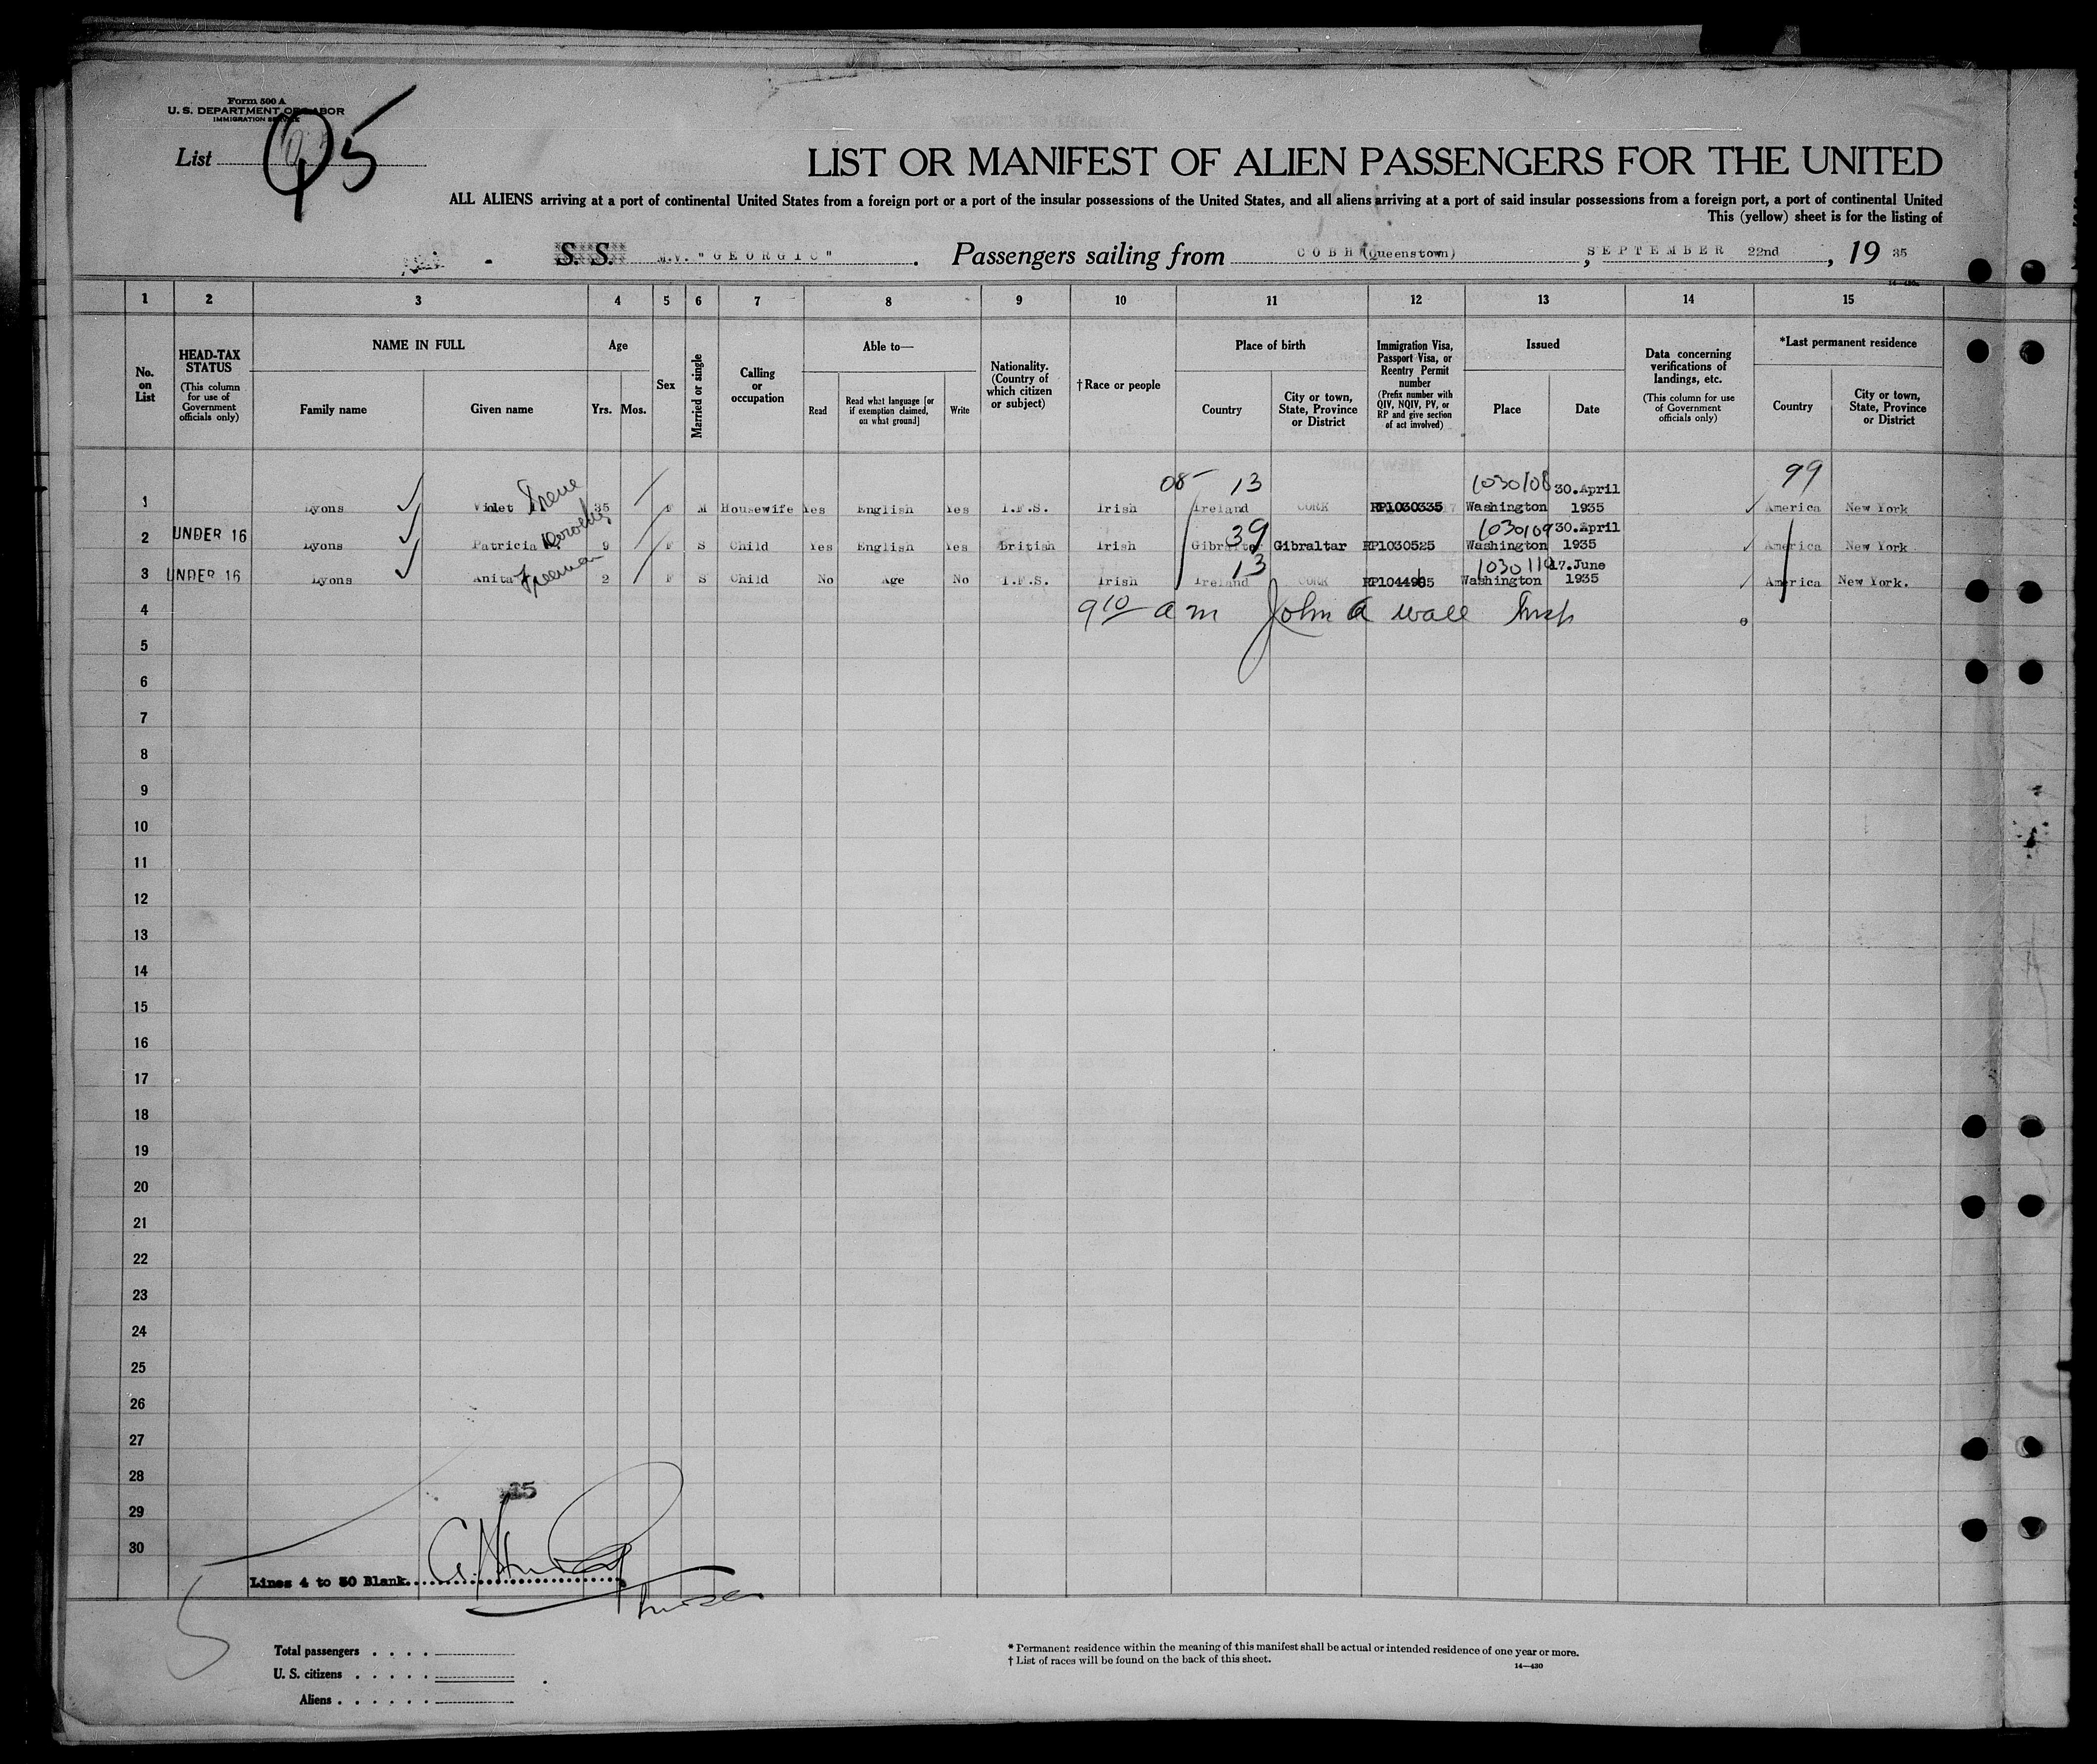 Form 500 A
U. S. DEPARTMENT OF LABOR
IMMIGRATION SERVICE
List 5
LIST OR MANIFEST OF ALIEN PASSENGERS FOR THE UNITED
ALL ALIENS arriving at a port of continental United States from a foreign port or a port of the insular possessions of the United States, and all aliens arriving at a port of said insular possessions from a foreign port, a port of continental United
This (yellow) sheet is for the listing of
S. S. M.V. "GEORGIC" . Passengers sailing from COBH (Queenstown) , SEPTEMBER 22nd , 19 35
1 2 3 4 5 6 7 8 9 10 11 12 13 14 15
No. on List
HEAD-TAX STATUS (This column for use of Government officials only)
NAME IN FULL Family name Given name
Age Yrs. Mos.
Sex
Married or single
Calling or occupation
Able to— Read Read what language [or if exemption claimed, on what ground] Write
Nationality. (Country of which citizen or subject)
†Race or people
Place of birth Country City or town, State, Province or District
Immigration Visa, Passport Visa, or Reentry Permit number (Prefix number with QIV, NQIV, PV, or RP and give section of act involved)
Issued Place Date
Data concerning verifications of landings, etc. (This column for use of Government officials only)
*Last permanent residence Country City or town, State, Province or District
08 13 1030108 99
1 Lyons Violet Irene 35 F M Housewife Yes English Yes I.F.S. Irish Ireland CORK RP1030335 Washington 30.April 1935 America New York
39 1030109
2 UNDER 16 Lyons Patricia Dorothy 9 F S Child Yes English Yes British Irish Gibraltar Gibraltar RP1030525 Washington 30.April 1935 America New York
13 1030110
3 UNDER 16 Lyons Anita Freeman 2 F S Child No Age No I.F.S. Irish Ireland CORK RP1044985 Washington 17.June 1935 America New York.
4 9 10 am John A Wall Insp
5
6
7
8
9
10
11
12
13
14
15
16
17
18
19
20
21
22
23
24
25
26
27
28
29
30
Lines 4 to 30 Blank
Purser
Total passengers
U. S. citizens
Aliens
* Permanent residence within the meaning of this manifest shall be actual or intended residence of one year or more.
† List of races will be found on the back of this sheet.
14—430